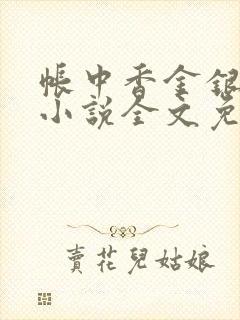 帳中香金銀
小說全文免
賣花兒姑娘